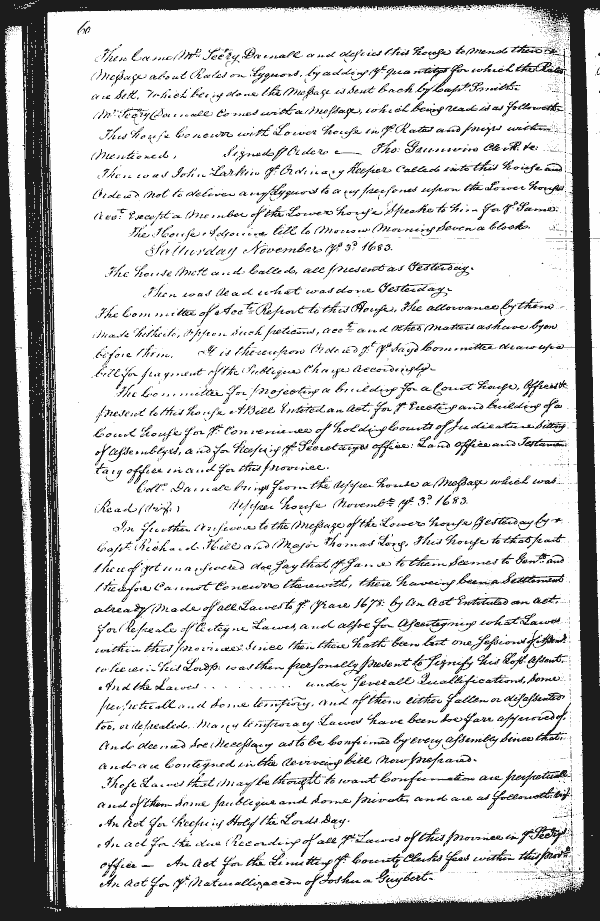 60
Then Came Mr. Secry. Darnall and desires this house to mend their
Message about Rates on Lyquors, by adding ye. quantitys for which the Rates
are sett, which being done the Message is sent back by Capt. Smith.
Mr. Secry Darnall comes with a Message, which being read is as followeth
This house Concurr with Lower house in ye. Rates and prizes within
Mentioned, Signed pr Order Tho: Grunwin Clerk &c.
Then was John Larkin ye. Ordinary Keeper called into this house and
Ordered not to deliver any Lyquors to any persones upon the Lower houses
Acct. Except a Member of the Lower house speake to him for ye. Same.
The House Adjourne till to Morrow Morning Seven a Clock.
Saturday November ye. 3d. 1683.
The house Mett and Called, all present as Yesterday.
Then was Read what was done Yesterday.
The Committee of Acctts. Report to this House, The allowance by them
made hitherto, uppon such peticons, acctts. and other Matters as have byn
before them. It is thereupon Ordered yt. ye. sayd Committee draw up a
bill for payment of the Publique Charge accordingly.
The Committee for projecting a building for a Court house, Offices &c
present to this house A Bill Entitled an Act. for ye. Erecting and building of a
Court house for ye. Convenience of holding Courts of Judicature sitting
of Assemblyes, and for keeping ye. Secretaryes office: Land office and Testamen
tary office in and for this province.
Coll. Darnall brings from the Upper house a Message which was
Read (vizt.) Upper house Novembr. ye. 3d. 1683.
In further Answere to the Message of the Lower house Yesterday by
Capt. Richard Hill and Major Thomas Long This house to that part
thereof yet unanswered doe say that ye. Same to them seemes to Genll. and
therefore Cannot Concurr therewith, there haveing been a Settlement
already made of all Lawes to ye. Yeare 1678: by An Act Entituled an act.
for Repeale of Certeyne Lawes, and alsoe for Ascerteyning what Lawes
within this province Since then there hath been but one Sessions of
wherein his Lordsp: was then personally present to Signify his Lopps Assent.
And the Lawes . . . . . . . . . . under severall Quallifications, some
perpetuall and some temporary, and of them either fallen or disassented
too, or repealed. Many temporary Lawes have been soe farr approved of
and deemed soe Necessary as to be Confirmed by every assembly since that:
and are Conteyned in the Reviveing bill now prepared.
Those Lawes that may be thought to want Confirmation are perpetuall
and of them some publique and some private, and are as followeth, vizt
An Act for keeping Holy the Lords Day.
An act for the due Recording of all ye. Lawes of this province in ye. Secrys
office — An Act for the Limitting of ye. County Clerks fees within this provce
An Act for ye. Naturallizaccon of Joshua Guybert.